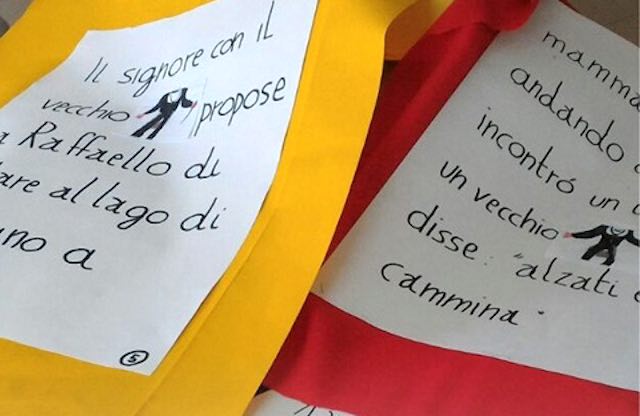 Il signore con il
vecchio propose
Raffaello di
al lago di
a
5
mamma
andando
incontró un
un vecchio
disse: "alzati
cammina"